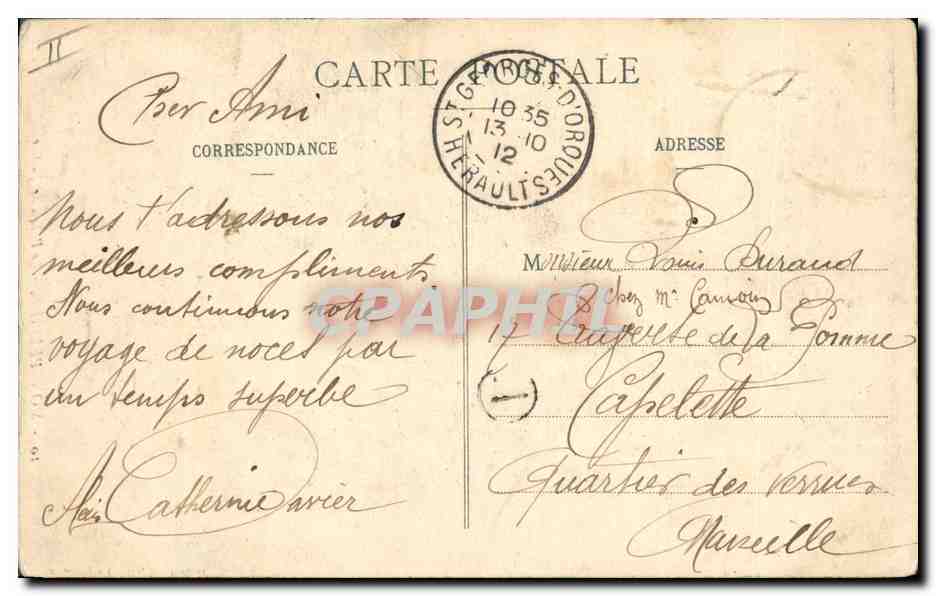 II
CARTE POSTALE
Cher Ami
CORRESPONDANCE
ST GEORGES-D'ORQUES
10 35
13 10
12
HERAULT
ADRESSE
Nous t'adressons nos
meilleurs compliments
Nous continuons notre
voyage de noces par
un temps superbe
Catherine
Monsieur Louis Durand
chez Mr
17 Traverse de la Pomme
1
Capelette
Quartier des
Marseille
CPAPHIL